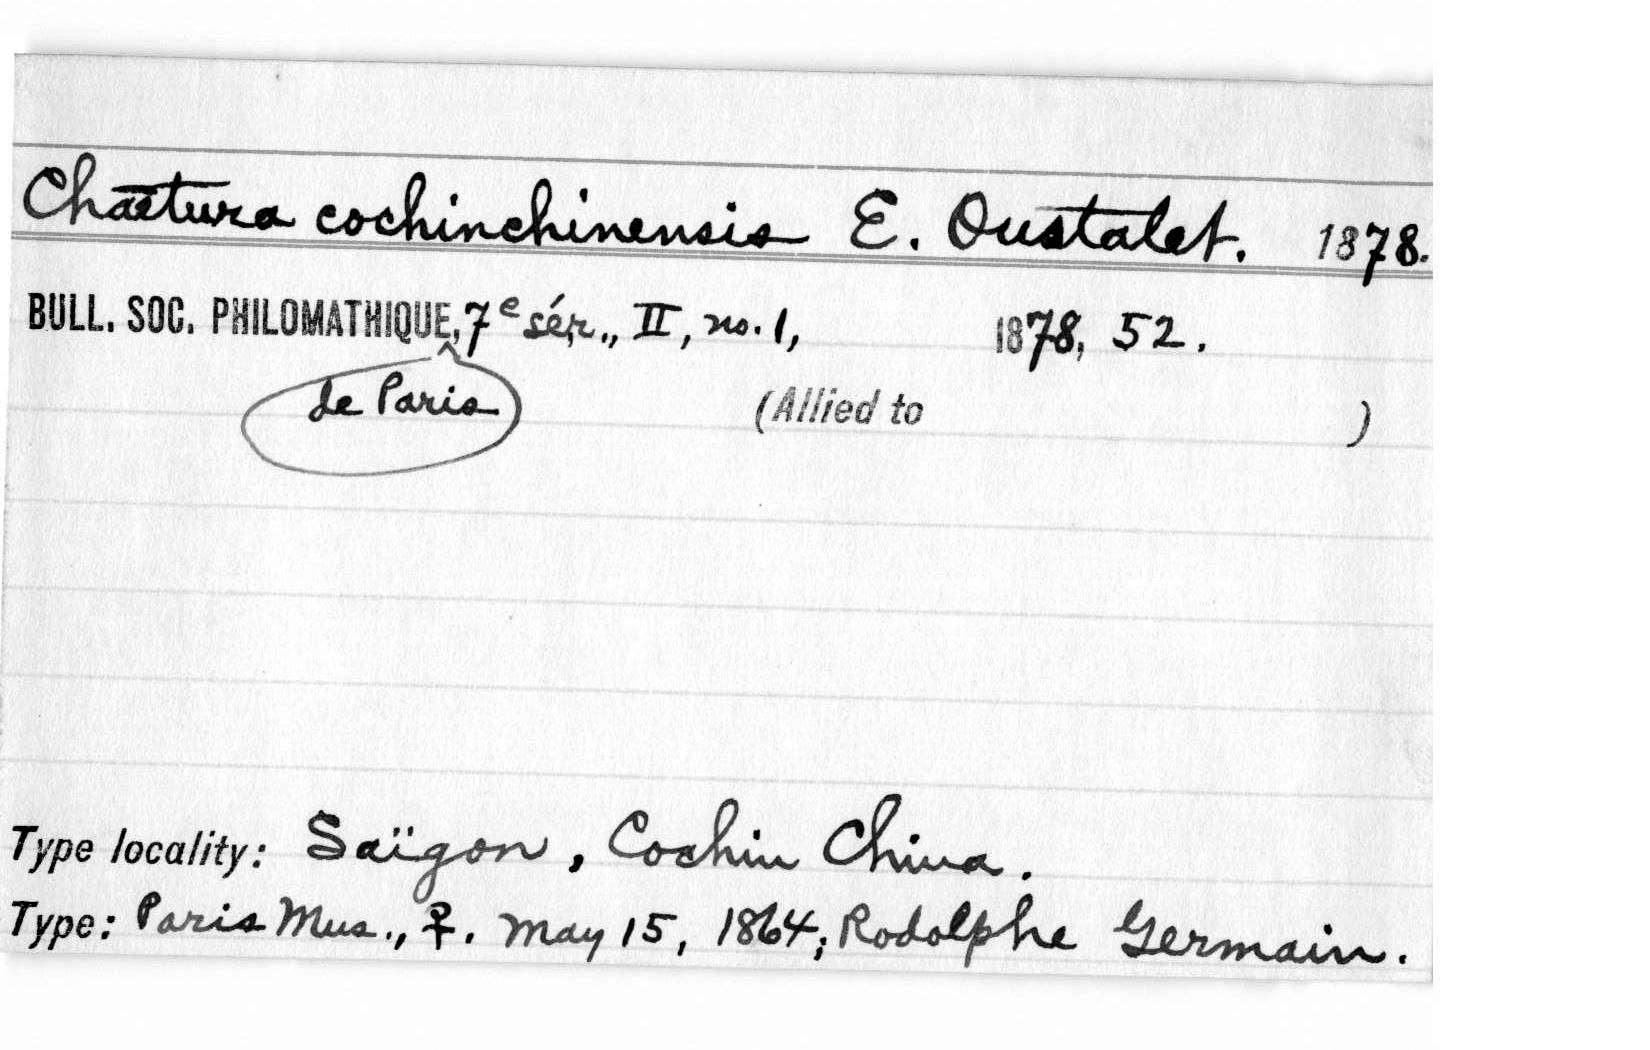 Chaetura cochinchinensis E. Oustalet. 1878.
BULL. SOC. PHILOMATHIQUE, 7e sér., II, no. 1, 1878, 52.
de Paris (Allied to )
Type locality: Saïgon, Cochin China.
Type: Paris Mus., ♀. May 15, 1864; Rodolphe Germain.